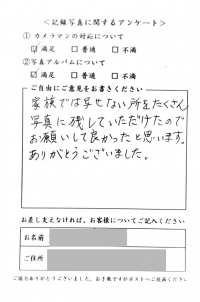 ＜記録写真に関するアンケート＞
①カメラマンの対応について
☑満足 □普通 □不満
②写真アルバムについて
☑満足 □普通 □不満
ご自由にご意見をお書きください
家族では写せない所をたくさん
写真に残していただけたので
お願いして良かったと思います。
ありがとうございました。
お差し支えなければ、お客様についてご記入ください
お名前
ご住所
ご協力ありがとうございました。お手数ですがポストへご投函ください